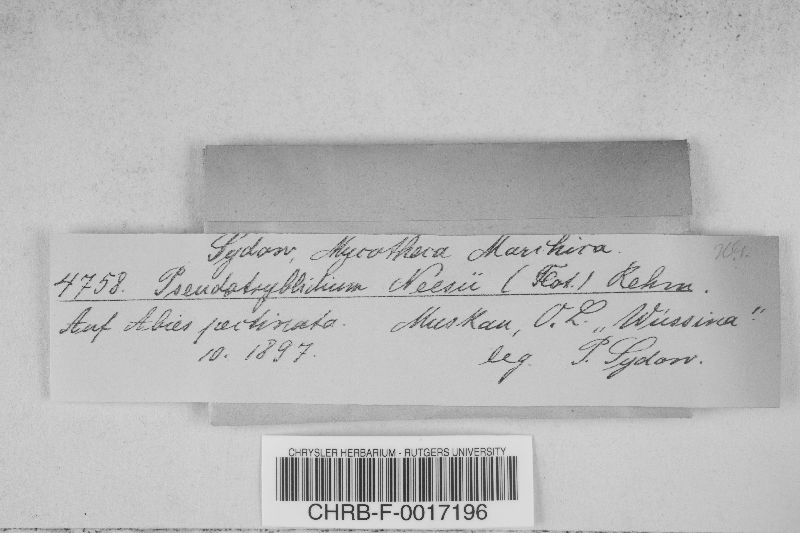 Sydow, Mycotheca Marchica.
4758. Pseudotryblidium Neesii (Flot.) Rehm.
Auf Abies pectinata. Muskau, O. L. „Wussina"
10. 1897. leg. P. Sydow.
CHRYSLER HERBARIUM - RUTGERS UNIVERSITY
CHRB-F-0017196